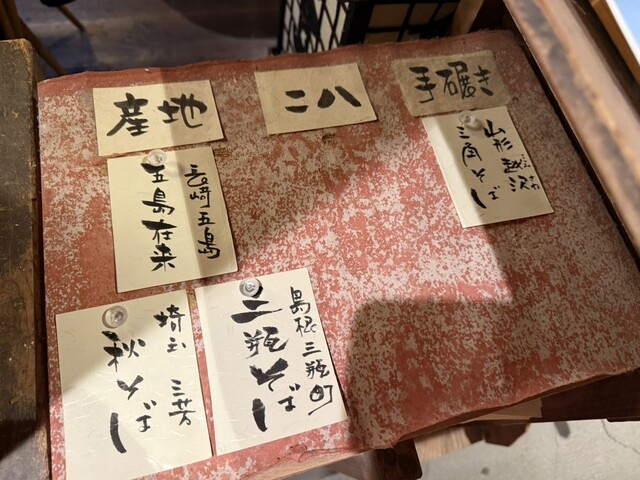 産地
二八
手碾き
長崎五島
五島在来
山形越沢
こえさわ
三角そば
埼玉 三芳
秋そば
島根三瓶町
三瓶そば